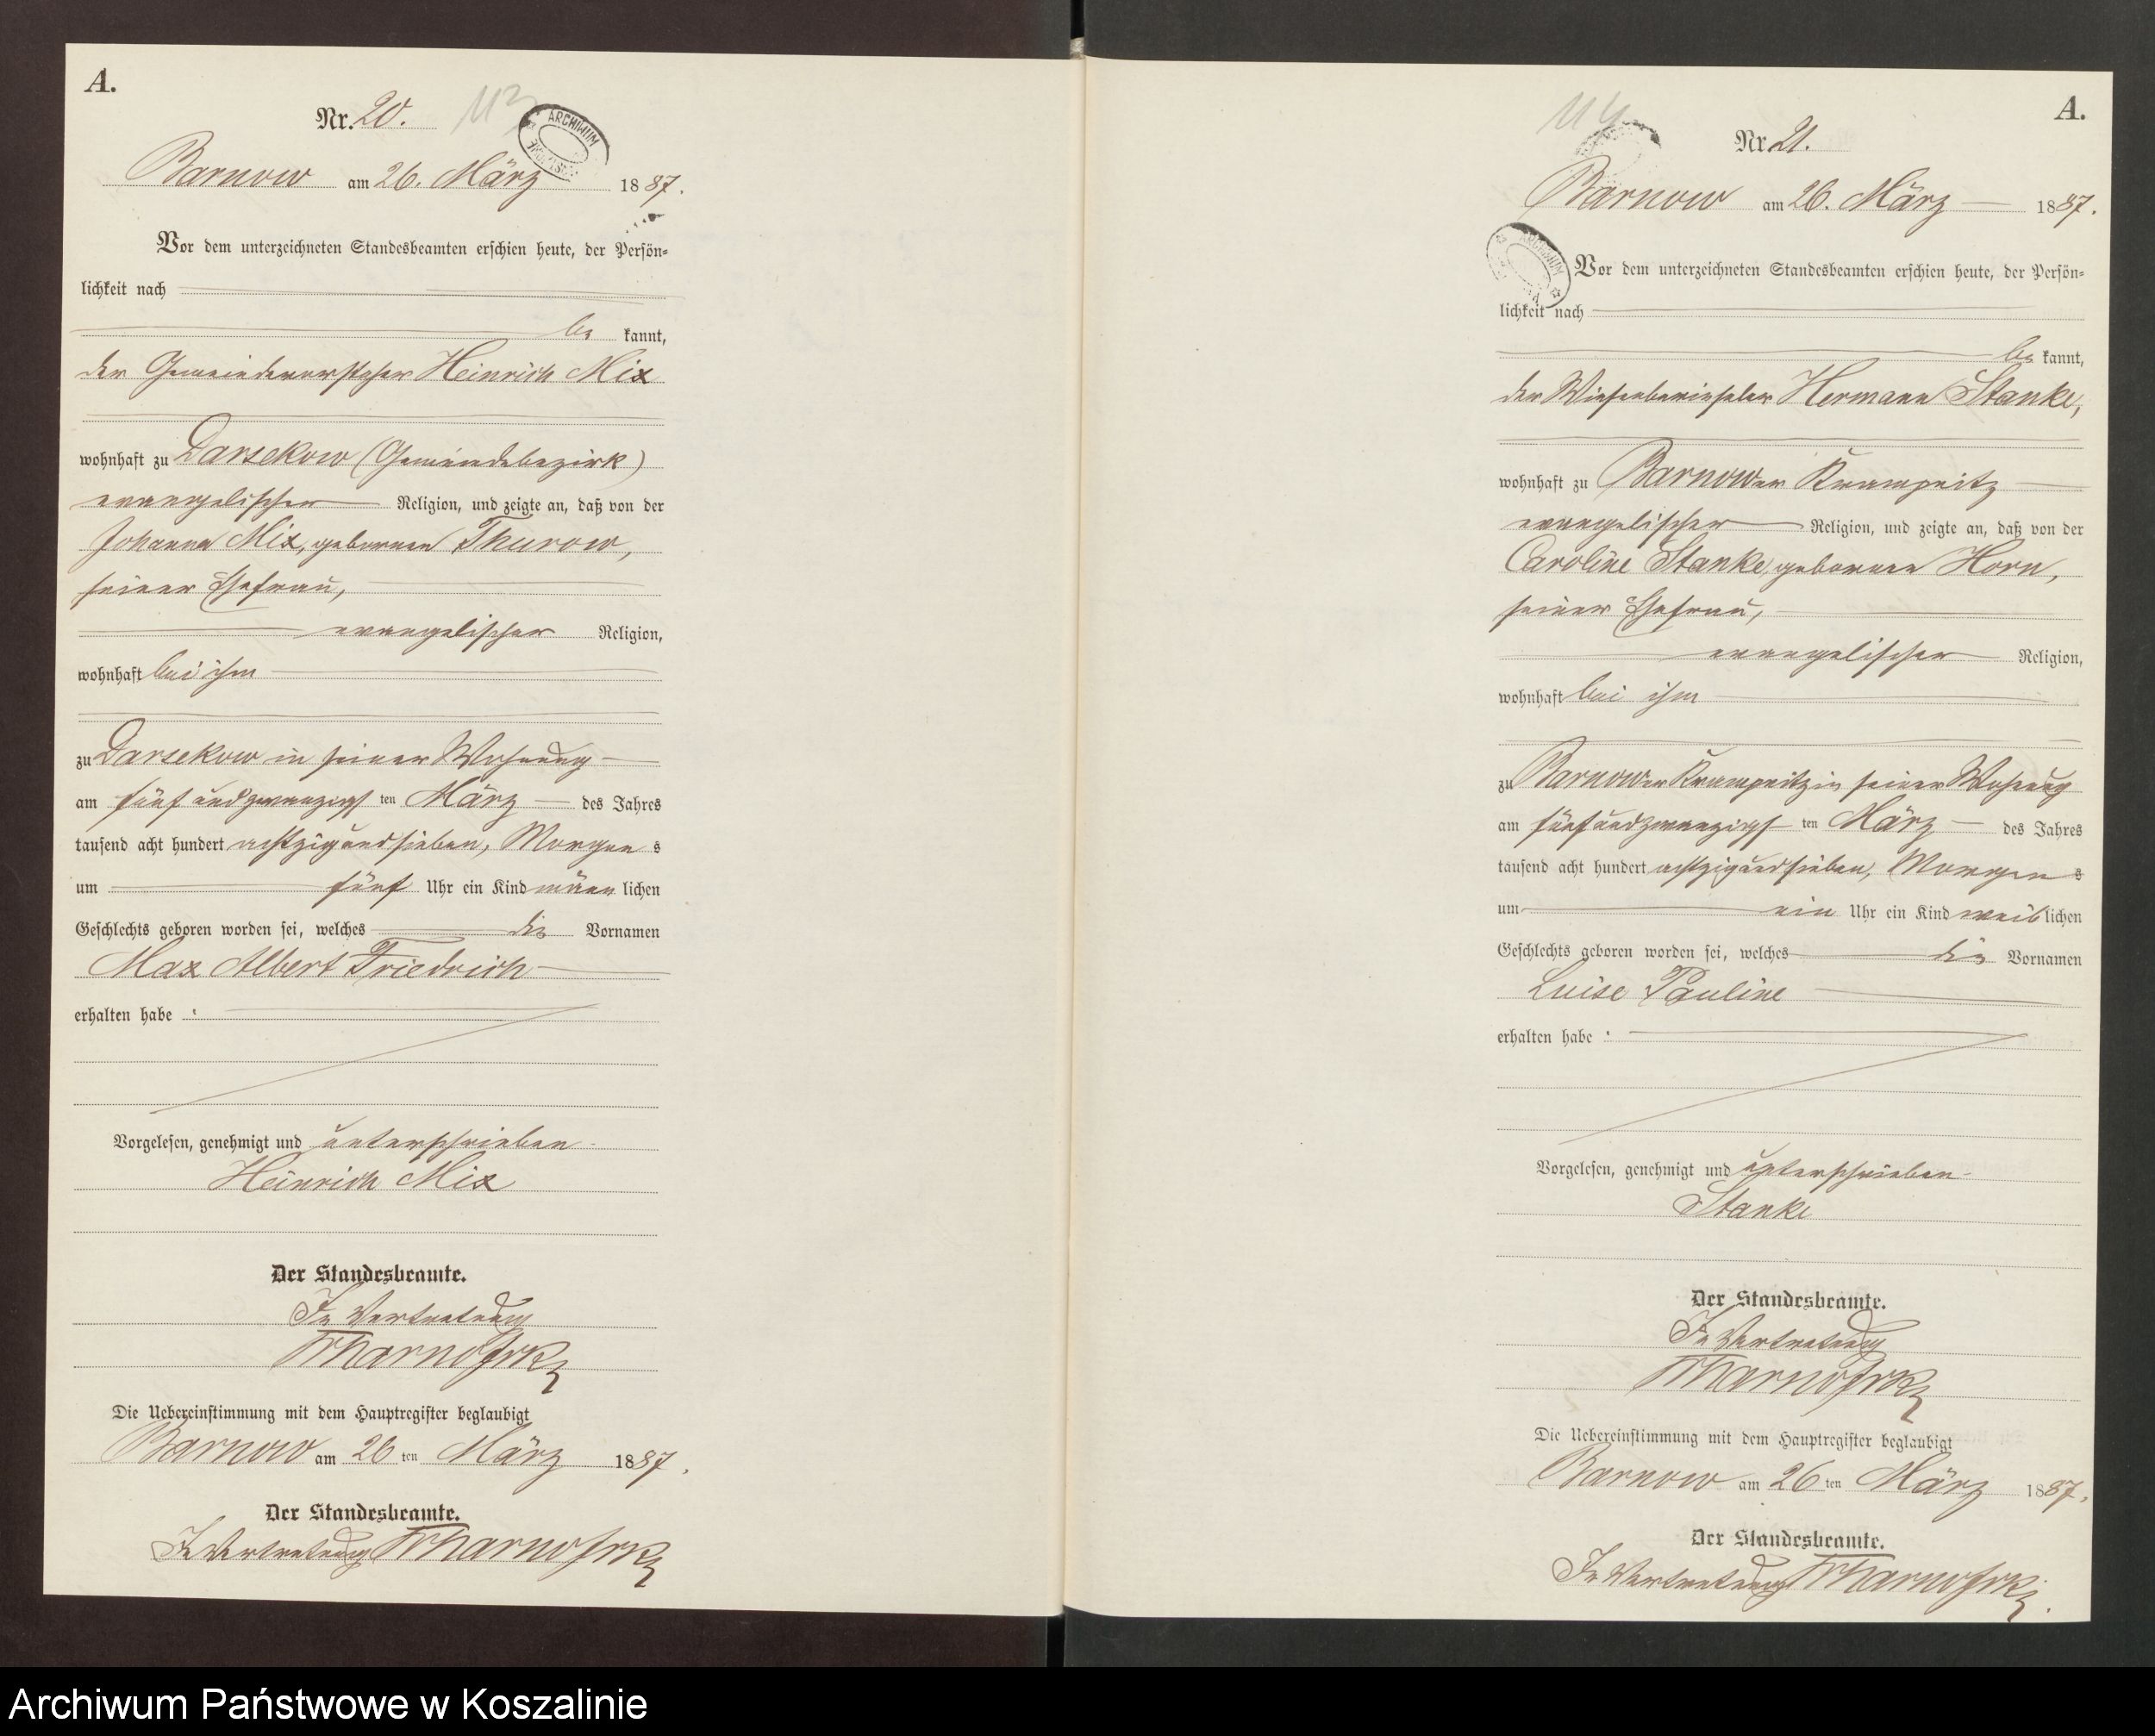 A.
Nr. 20.
113
ARCHIWUM
Barnow am 26. März 1887.
Vor dem unterzeichneten Standesbeamten erschien heute, der Persön-
lichkeit nach
be kannt,
der Gemeindevorsteher Heinrich Mix
wohnhaft zu Darsekow (Gemeindebezirk)
evangelischer Religion, und zeigte an, daß von der
Johanna Mix, geborenen Thurow,
seiner Ehefrau,
evangelischer Religion,
wohnhaft bei ihm
zu Darsekow in seiner Wohnung
am fünfundzwanzigs ten März des Jahres
tausend acht hundert achtzigundsieben, Morgens
um fünf Uhr ein Kind männlichen
Geschlechts geboren worden sei, welches die Vornamen
Max Albert Friedrich
erhalten habe.
Vorgelesen, genehmigt und unterschrieben
Heinrich Mix
Der Standesbeamte.
In Vertretung
Die Uebereinstimmung mit dem Hauptregister beglaubigt
Barnow am 26 ten März 1887.
Der Standesbeamte.
In Vertretung
A.
114
Nr. 21.
Barnow am 26. März 1887.
ARCHIWUM
Vor dem unterzeichneten Standesbeamten erschien heute, der Persön-
lichkeit nach
be kannt,
der Wiesenberieseler Hermann Stanke,
wohnhaft zu Barnower Krampnitz
evangelischer Religion, und zeigte an, daß von der
Caroline Stanke, geborenen Horn,
seiner Ehefrau,
evangelischer Religion,
wohnhaft bei ihm
zu Barnower Krampnitz in seiner Wohnung
am fünfundzwanzigs ten März des Jahres
tausend acht hundert achtzigundsieben, Morgens
um ein Uhr ein Kind weiblichen
Geschlechts geboren worden sei, welches die Vornamen
Luise Pauline
erhalten habe.
Vorgelesen, genehmigt und unterschrieben
Stanke
Der Standesbeamte.
In Vertretung
Die Uebereinstimmung mit dem Hauptregister beglaubigt
Barnow am 26 ten März 1887.
Der Standesbeamte.
In Vertretung
Archiwum Państwowe w Koszalinie